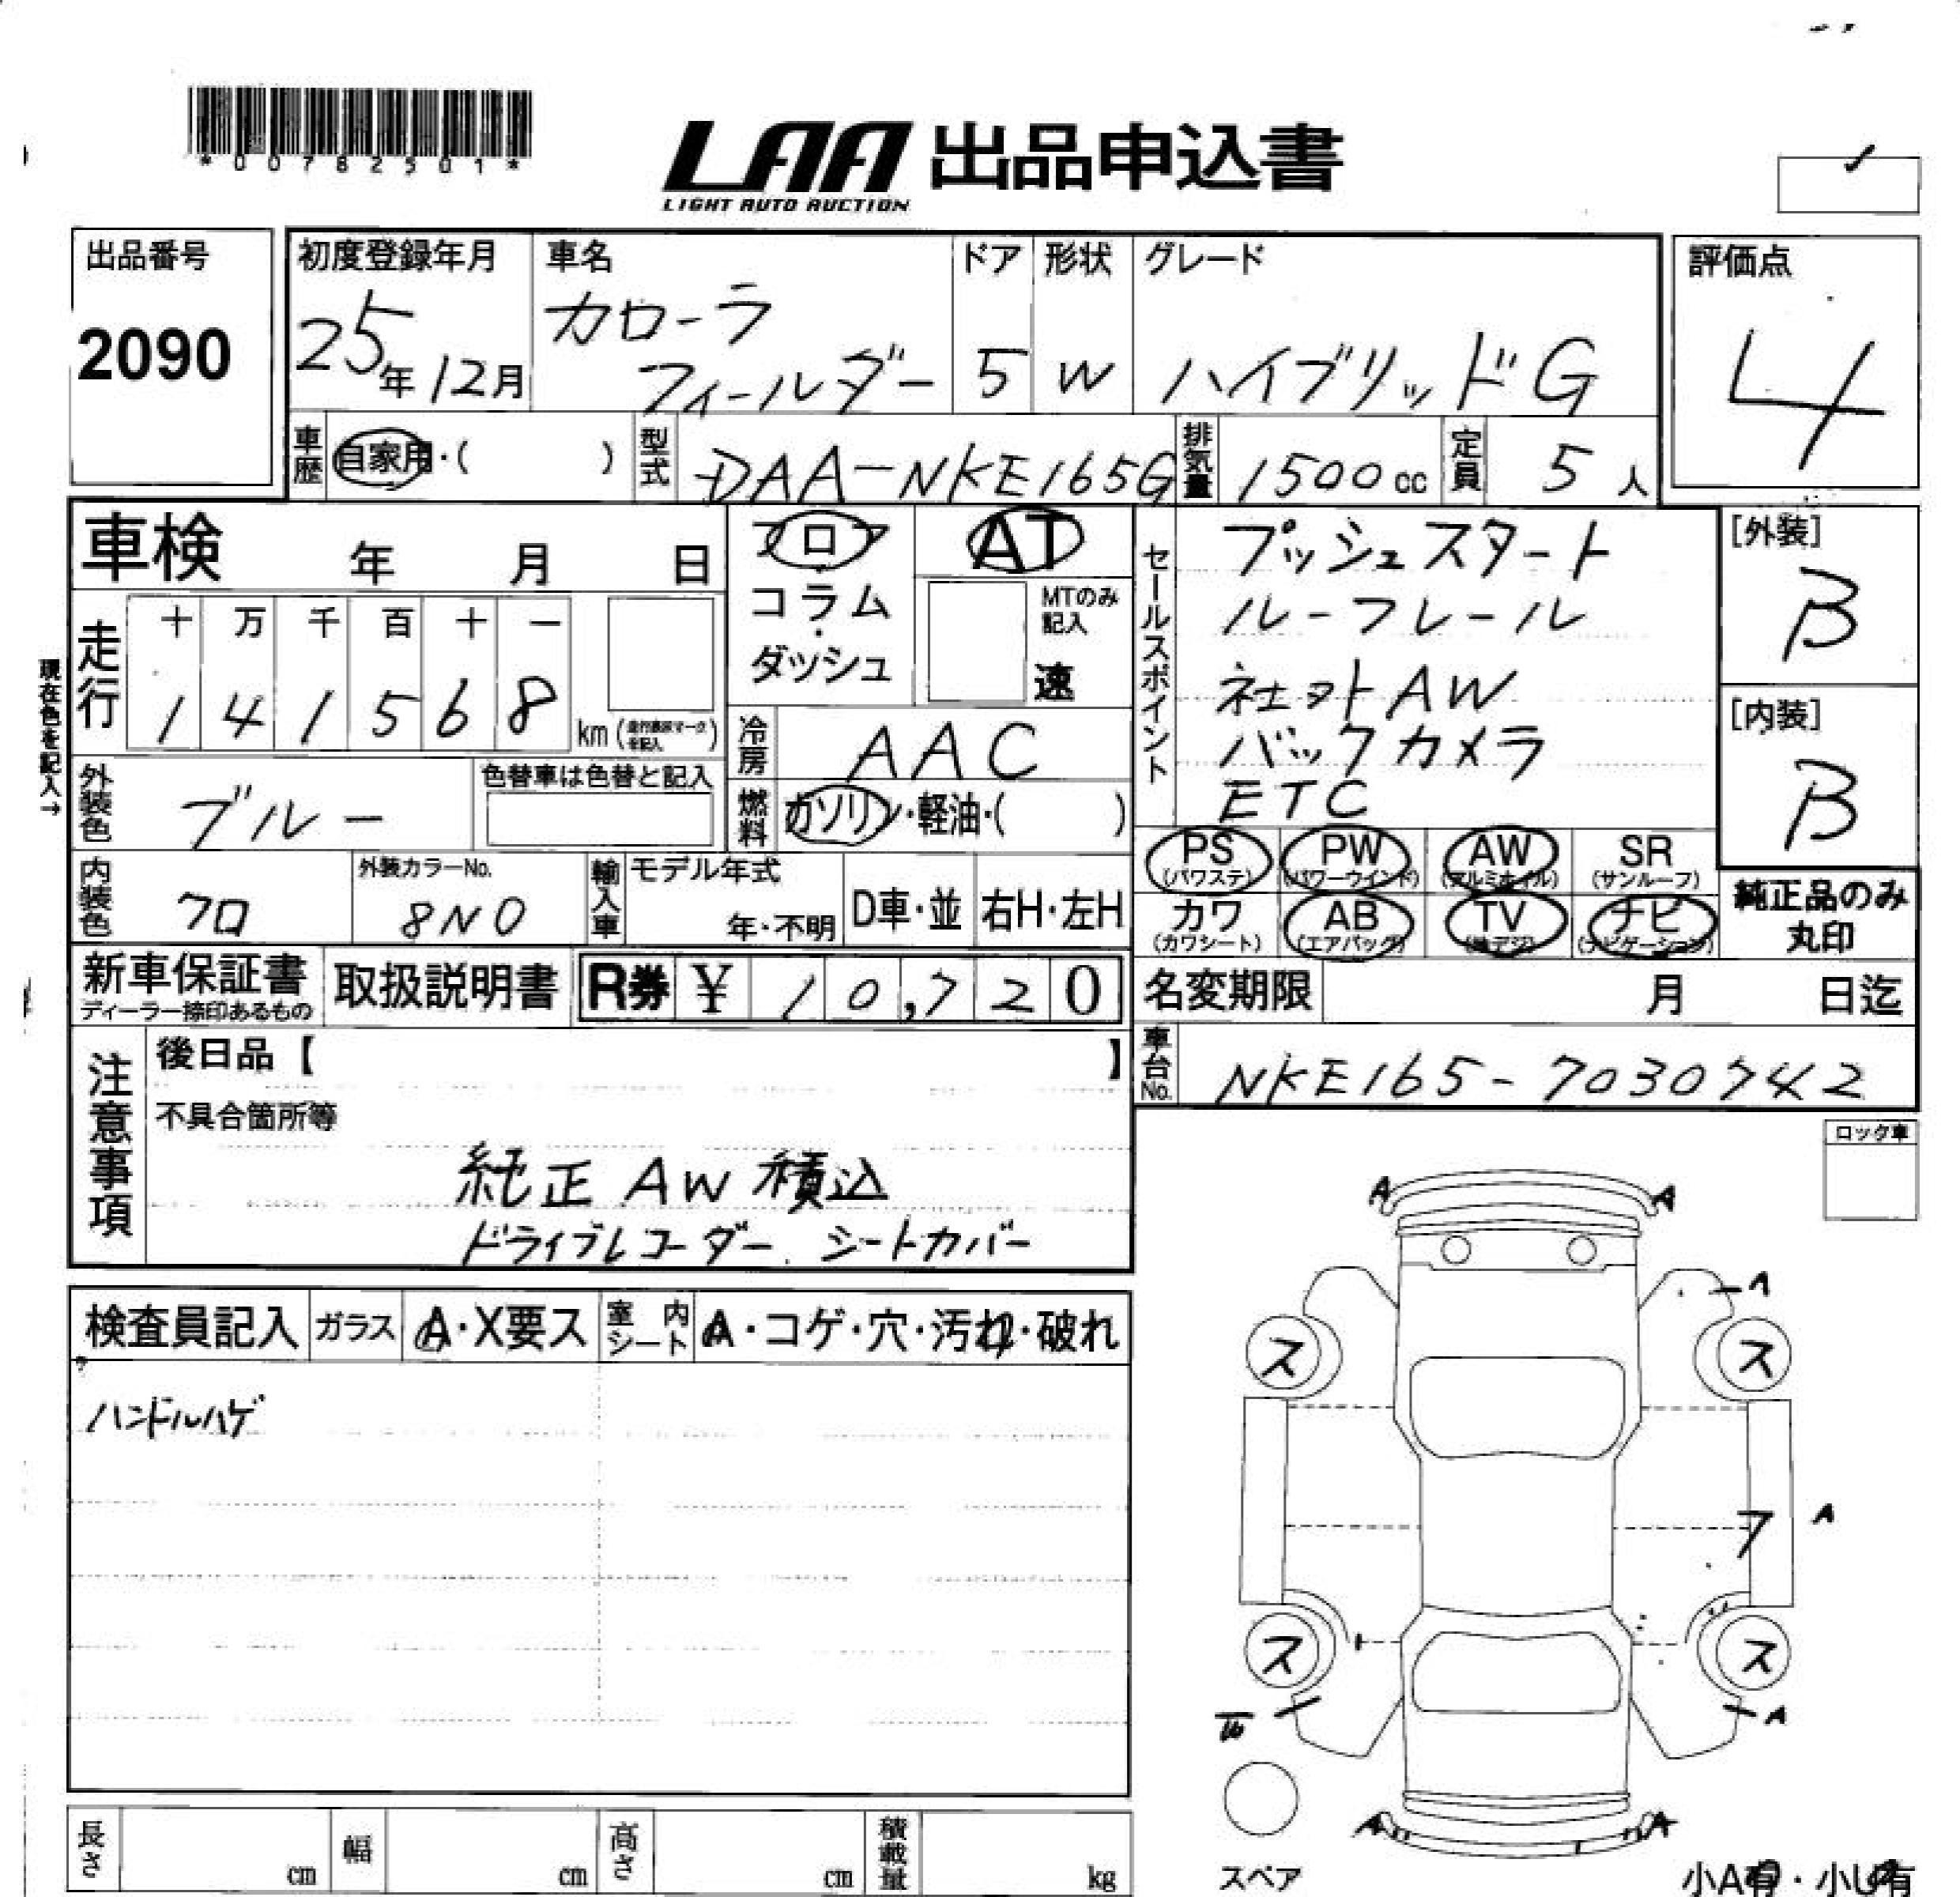 *00782501*
LAA 出品申込書
LIGHT AUTO AUCTION
出品番号
2090
初度登録年月
25年12月
車名
カローラ
フィールダー
ドア
5
形状
W
グレード
ハイブリッドG
評価点
4
車歴
自家用・( )
型式
DAA-NKE165G
排気量
1500cc
定員
5人
車検 年 月 日
フロア
コラム
・
ダッシュ
AT
MTのみ
記入
速
セールスポイント
プッシュスタート
ルーフレール
社外AW
バックカメラ
ETC
[外装]
B
[内装]
B
現在色を記入→
走行
十 万 千 百 十 一
1 4 1 5 6 8
km
冷房
AAC
外装色
ブルー
色替車は色替と記入
燃料
ガソリン・軽油・( )
内装色
クロ
外装カラーNo.
8N0
輸入車
モデル年式
年・不明
D車・並
右H・左H
PS
(パワステ)
PW
(パワーウインド)
AW
(アルミホイル)
SR
(サンルーフ)
カワ
(カワシート)
AB
(エアバッグ)
TV
(地デジ)
ナビ
(ナビゲーション)
純正品のみ
丸印
新車保証書
ディーラー捺印あるもの
取扱説明書
R券 ¥ 10,720
名変期限 月 日迄
車台No.
NKE165-7030742
注意事項
後日品【 】
不具合箇所等
純正 AW 積込
ドライブレコーダー、シートカバー
ロック車
検査員記入
ガラス
A・X要ス
室内シート
A・コゲ・穴・汚れ・破れ
ハンドルハゲ
A A
A
ス ス
フ A
ス ス
A
A A
スペア
小A有・小U有
長さ cm
幅 cm
高さ cm
積載量 kg